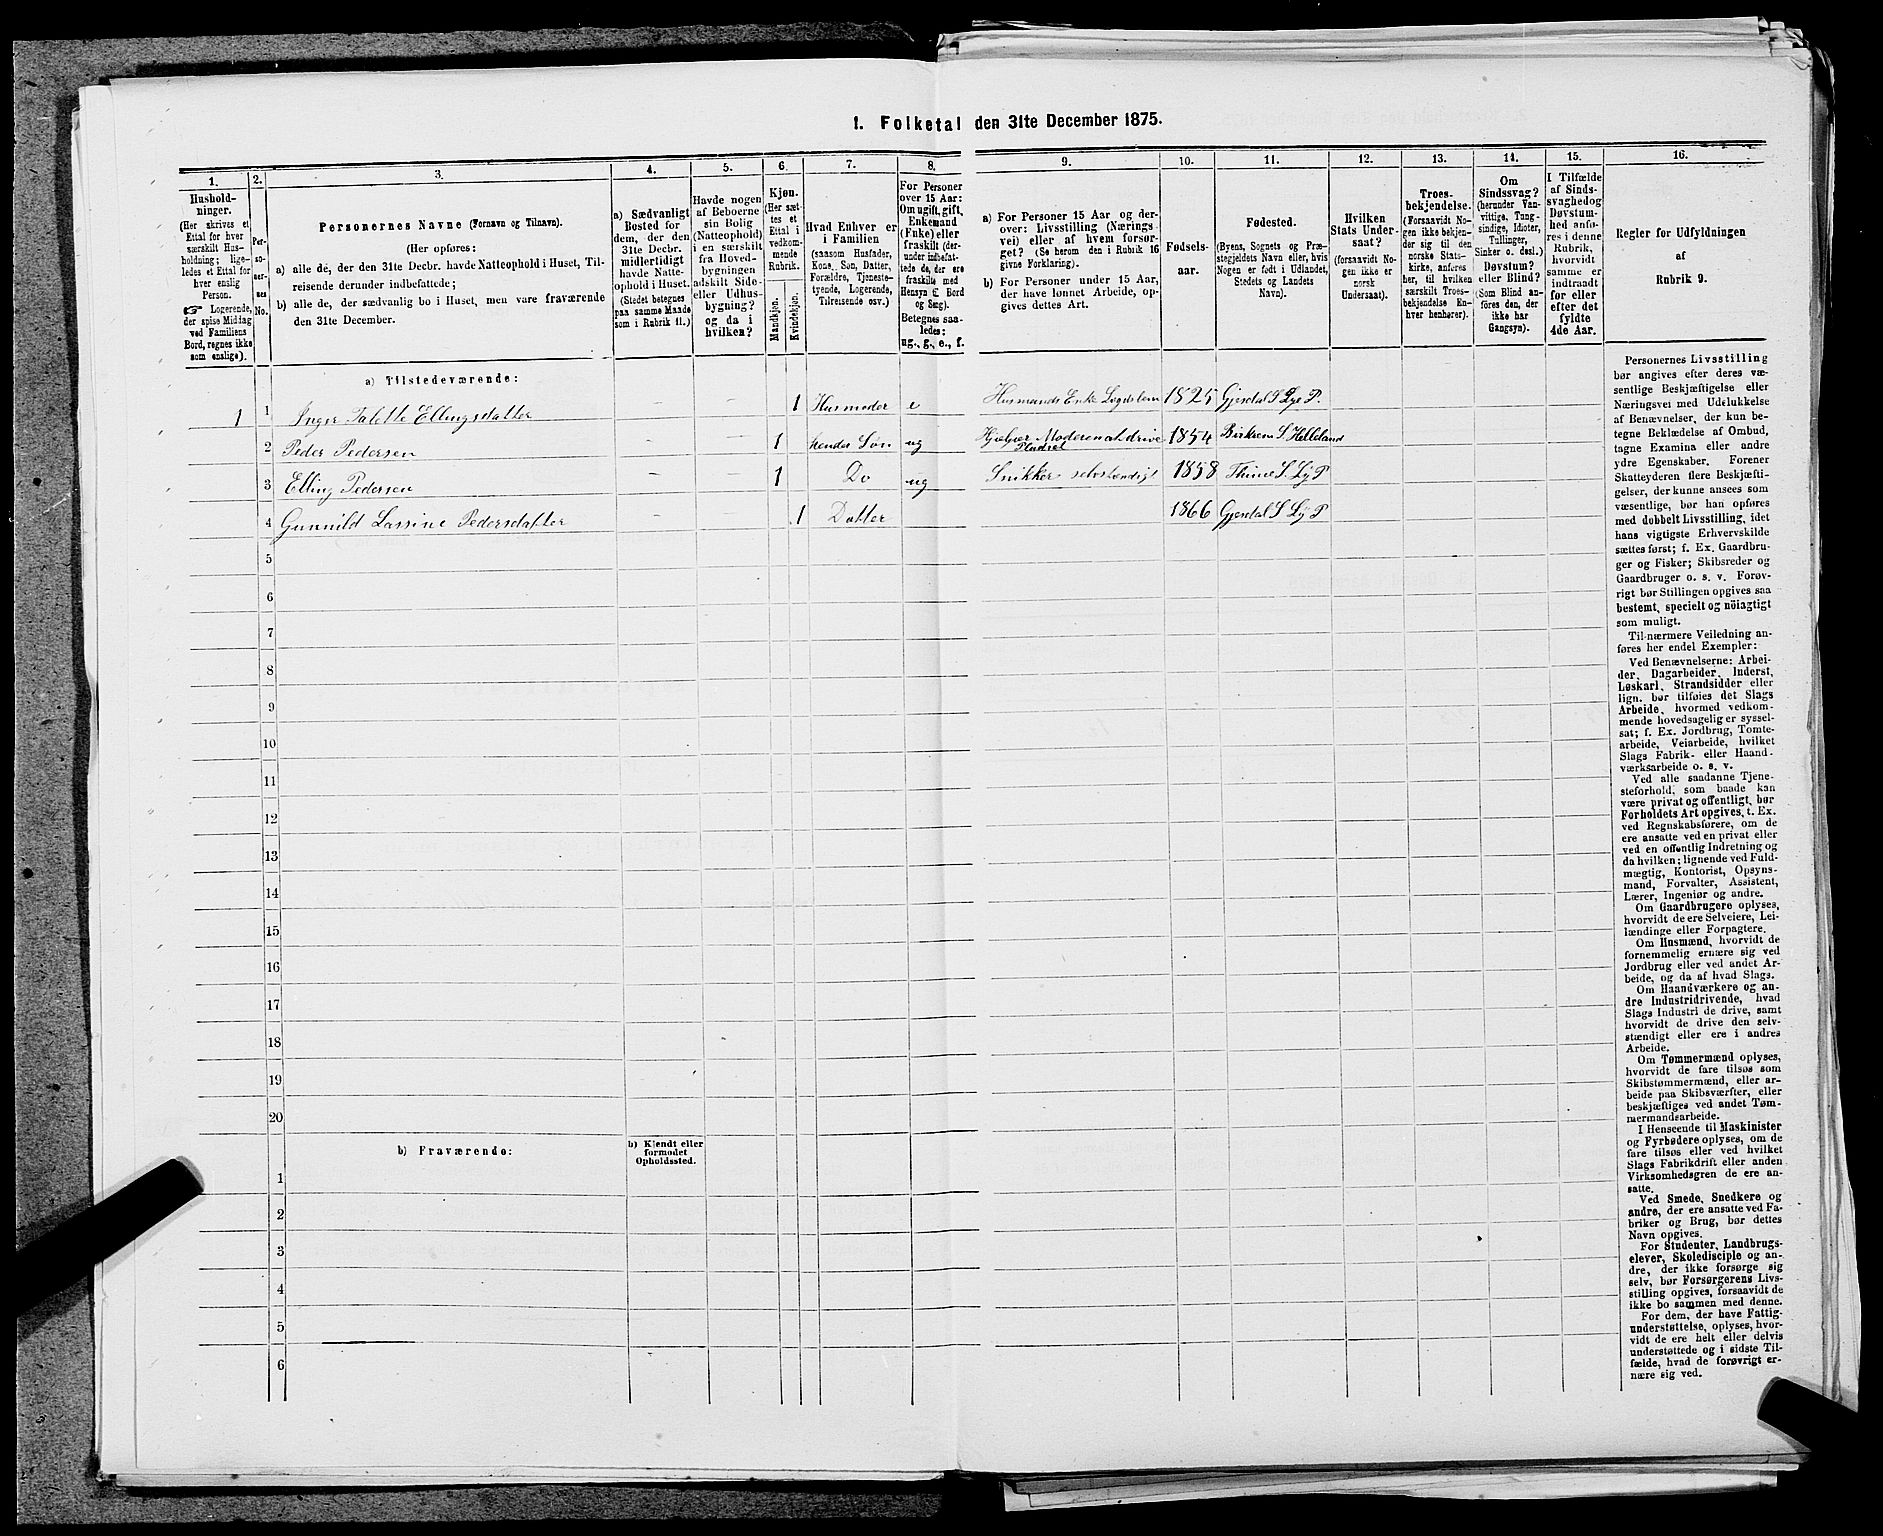 1. Folketal den 31te December 1875.
1. 2. 3. 4. 5. 6. 7. 8. 9. 10. 11. 12. 13. 14. 15. 16.
Hushold-
ninger.
(Her skrives et
Ettal for hver
særskilt Hus-
holdning; lige-
ledes et Ettal for
hver enslig
Person.
☞ Logerende,
der spise Middag
ved Familiens
Bord, regnes ikke
som enslige).
Per-
so-
ner-
nes
No.
Personernes Navne (Fornavn og Tilnavn).
(Her opføres:
a) alle de, der den 31te Decbr. havde Natteophold i Huset, Til-
reisende derunder indbefattede;
b) alle de, der sædvanlig bo i Huset, men vare fraværende
den 31te December.
a) Sædvanligt
Bosted for
dem, der den
31te Decbr.
midlertidigt
havde Natte-
ophold i Huset.
(Stedet betegnes
paa samme Maade
som i Rubrik 11.)
Havde nogen
af Beboerne
sin Bolig
(Natteophold)
i en særskilt
fra Hoved-
bygningen
adskilt Side-
eller Udhus-
bygning?
og da i
hvilken?
Kjøn.
(Her sæt-
tes et
Ettal i
vedkom-
mende
Rubrik.
Mandkjøn.
Kvindekjøn.
Hvad Enhver er
i Familien
(saasom Husfader,
Kone, Søn, Datter,
Forældre, Tjeneste-
tyende, Logerende,
Tilreisende osv.)
For Personer
over 15 Aar:
Om ugift, gift,
Enkemand
(Enke) eller
fraskilt (der-
under indbefat-
tede de, der ere
fraskilte med
Hensyn til Bord
og Seng).
Betegnes saa-
ledes:
ug., g., e., f.
a) For Personer 15 Aar og der-
over: Livsstilling (Nærings-
vei) eller af hvem forsør-
get? (Se herom den i Rubrik 16
givne Forklaring).
b) For Personer under 15 Aar,
der have lønnet Arbeide, op-
gives dettes Art.
Fødsels-
aar.
Fødested.
(Byens, Sognets og Præ-
stegjeldets Navn eller, hvis
Nogen er født i Udlandet,
Stedets og Landets
Navn).
Hvilken
Stats Under-
saat?
(forsaavidt No-
gen ikke er
norsk
Undersaat).
Troes-
bekjendelse.
(Forsaavidt No-
gen ikke bekjen-
der sig til den
norske Stats-
kirke, anføres
her, til hvilken
særskilt Troes-
bekjendelse En-
hver henhører).
Om
Sindssvag?
(herunder Van-
vittige, Tung-
sindige, Idioter,
Tullinger,
Sinker o. desl.)
Døvstum?
eller Blind?
(Som Blind an-
føres den, der
ikke har
Gangsyn).
I Tilfælde
af Sinds-
svaghed og
Døvstum-
hed anfø-
res i denne
Rubrik,
hvorvidt
samme er
indtraadt
før eller
efter det
fyldte
4de Aar.
Regler for Udfyldningen
af
Rubrik 9.
a) Tilstedeværende:
1 1 Inger Talette Ellingsdatter – – 1 Husmoder e Husmands Enke Lægdslem 1825 Gjesdal S Lye P.
2 Peder Pedersen – – 1 hendes Søn ug Hjælper Moderen at drive Pladset 1854 Birkrem S. Helleland
3 Elling Pedersen – – 1 Do ug Snikker selvstændigt 1858 Thime S. Ly P
4 Gunnild Lassine Pedersdatter – – 1 Datter 1866 Gjesdal S Ly P
5
6
7
8
9
10
11
12
13
14
15
16
17
18
19
20
b) Fraværende:
b) Kjendt eller
formodet
Opholdssted.
1
2
3
4
5
6
Personernes Livsstilling
bør angives efter deres væ-
sentlige Beskjæftigelse eller
Næringsvei med Udelukkelse
af Benævnelser, der kun be-
tegne Beklædelse af Ombud,
tagne Examina eller andre
ydre Egenskaber. Forener
Skatteyderen flere Beskjæfti-
gelser, der kunne ansees som
væsentlige, bør han opføres
med dobbelt Livsstilling, idet
hans vigtigste Erhvervskilde
sættes først; f. Ex. Gaardbru-
ger og Fisker; Skibsreder og
Gaardbruger o. s. v. Forøv-
rigt bør Stillingen opgives saa
bestemt, specielt og nöiagtigt
som muligt.
Til nærmere Veiledning an-
føres her endel Exempler:
Ved Benævnelserne: Arbei-
der, Dagarbeider, Inderst,
Løskarl, Strandsidder eller
lign. bør tilføies det Slags
Arbeide, hvormed vedkom-
mende hovedsagelig er syssel-
sat; f. Ex. Jordbrug, Tomte-
arbeide, Veiarbeide, hvilket
Slags Fabrik- eller Haand-
værksarbeide o. s. v.
Ved alle saadanne Tjene-
steforhold, som baade kan
være privat og offentligt, bør
Forholdets Art opgives, t. Ex.
ved Regnskabsførere, om de
ere ansatte ved en privat eller
ved en offentlig Indretning og
da hvilken; lignende ved Fuld-
mægtig, Kontorist, Opsyns-
mand, Forvalter, Assistent,
Lærer, Ingeniør og andre.
Om Gaardbrugere oplyses,
hvorvidt de ere Selveiere, Lei-
lændinge eller Forpagtere.
Om Husmænd, hvorvidt de
fornemmelig ernære sig ved
Jordbrug eller ved andet Ar-
beide, og da af hvad Slags.
Om Haandværkere og an-
dre Industridrivende, hvad
Slags Industri de drive, samt
hvorvidt de drive den selv-
stændigt eller ere i andres
Arbeide.
Om Tømmermænd oplyses,
hvorvidt de fare tilsøs som
Skibstømmermænd, eller ar-
beide paa Skibsværfter, eller
beskjæftiges ved andet Tøm-
mermandsarbeide.
I Henseende til Maskinister
og Fyrbødere oplyses, om de
fare tilsøs eller ved hvilket
Slags Fabrikdrift eller anden
Virksomhedsgren de ere an-
satte.
Ved Smede, Snedkere og
andre, der ere ansatte ved Fa-
briker og Brug, bør dettes
Navn opgives.
For Studenter, Landbrugs-
elever, Skoledisciple og an-
dre, der ikke forsørge sig
selv, bør Forsørgerens Livs-
stilling opgives, forsaavidt de
ikke bo sammen med denne.
For dem, der have Fattig-
understøttelse, oplyses, hvor-
vidt de ere helt eller delvis
understøttede og i sidste Til-
fælde, hvad de forøvrigt er-
nære sig ved.